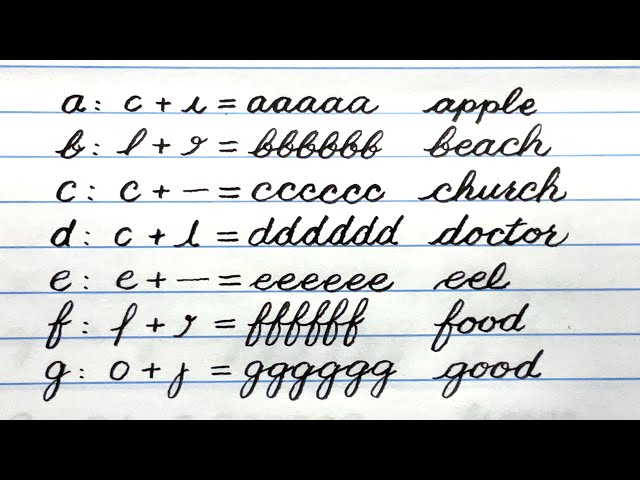 a: c + ı = aaaaa apple
b: l + ɂ = bbbbbb beach
c: c + — = cccccc church
d: c + l = dddddd doctor
e: e + — = eeeeee eel
f: l + ɂ = ffffff food
g: o + j = gggggg good